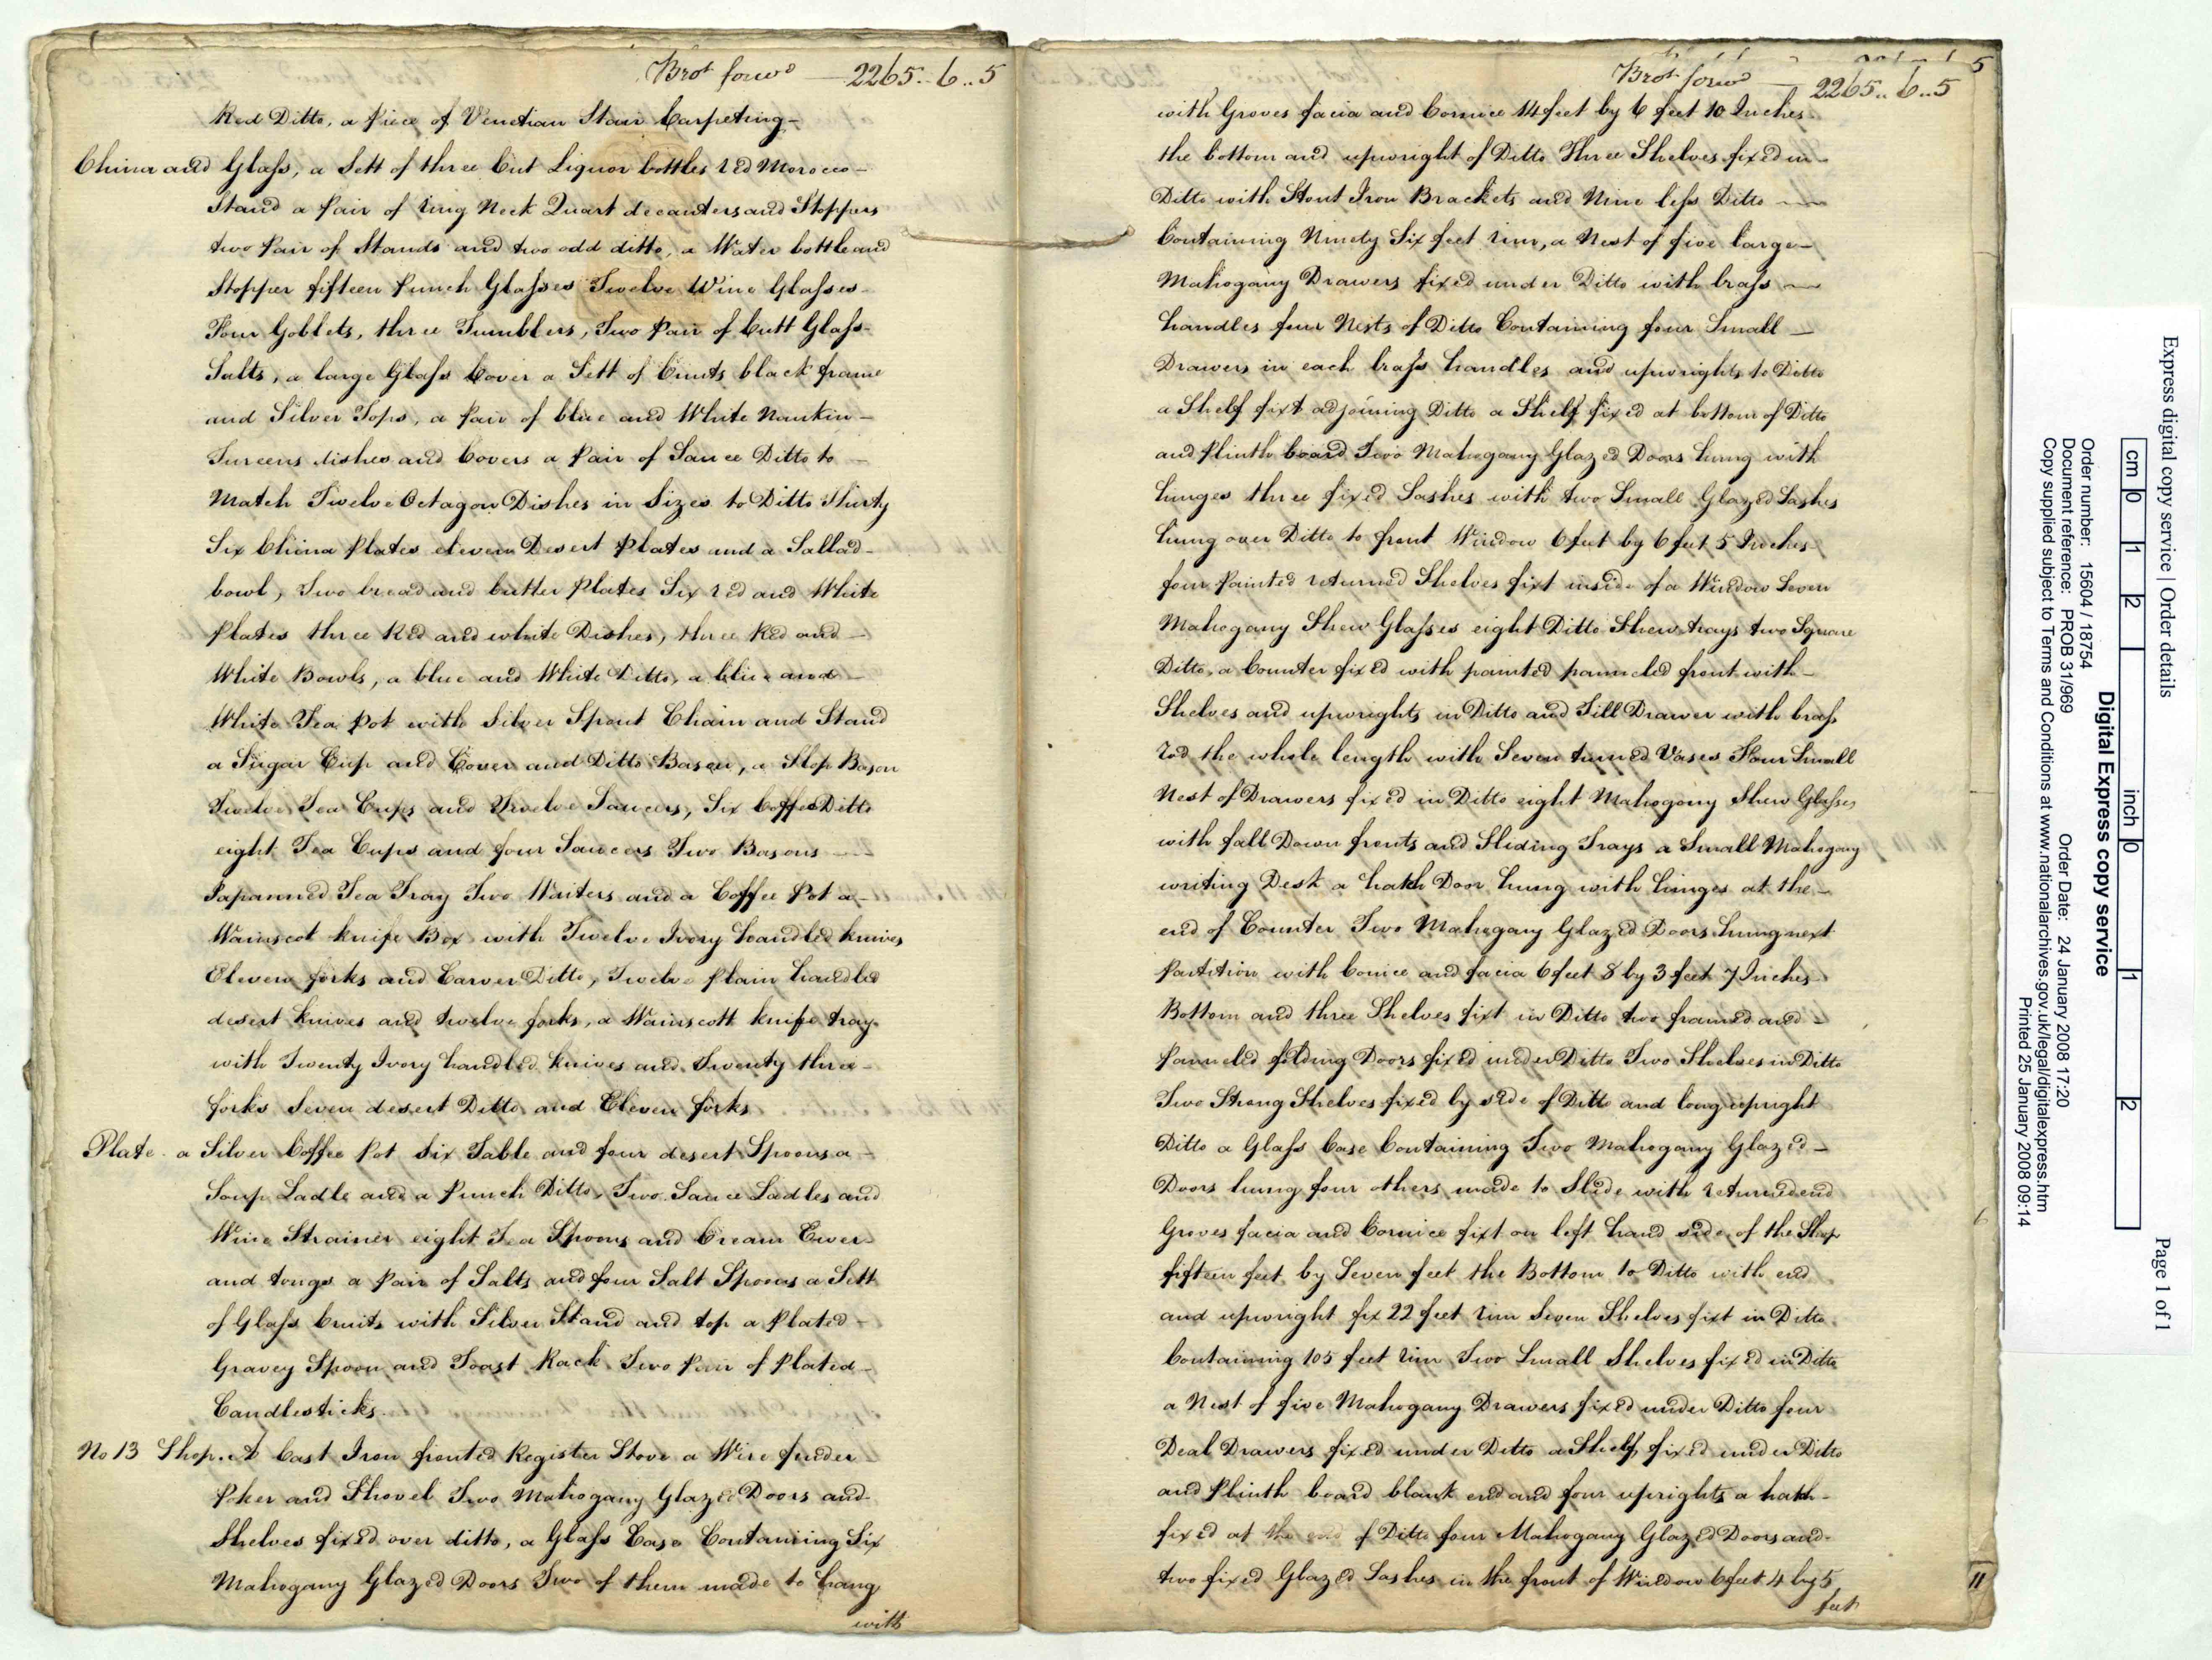 Brot forwd — 2265..6..5
Red Ditto, a piece of Venetian Stair Carpeting-
China and Glass, a Sett of three Cut Liquor bottles red Morocco-
Stand a Pair of ring Neck Quart decanters and Stoppers
two Pair of Stands and two odd ditto, a Water bottle and
Stopper fifteen Punch Glasses Twelve Wine Glasses-
Four Goblets, three Tumblers, Two Pair of Cutt Glass-
Salts, a large Glass Cover a Sett of Cruits black frame
and Silver Tops, a Pair of blue and White Nankin-
Tureens dishes and Covers a Pair of Sauce Ditto to-
Match Twelve Octagon Dishes in Sizes to Ditto Thirty
Six China Plates eleven Desert Plates and a Sallad-
bowl, Two bread and butter Plates Six red and White
Plates three Red and white Dishes, three Red and-
White Bowls, a blue and White Ditto, a blue and-
White Tea Pot with Silver Spout Chain and Stand
a Sugar Cup and Cover and Ditto Bason, a Slop Bason
Twelve Tea Cups and Twelve Saucers, Six Coffee Ditto
eight Tea Cups and four Saucers Two Basons —
Japanned Tea Tray Two Waiters and a Coffee Pot a-
Wainscot knife Box with Twelve Ivory handled knives
Eleven forks and Carver Ditto, Twelve plain handled
desert knives and twelve forks, a Wainscott knife tray
with Twenty Ivory handled knives and Twenty three-
forks Seven desert Ditto and Eleven forks
Plate. a Silver Coffee Pot Six Table and four desert Spoons a-
Soup Ladle and a Punch Ditto, Two Sauce Ladles and
Wine Strainer eight Tea Spoons and Cream Ewer
and tongs a Pair of Salts and four Salt Spoons a Sett
of Glass Cruits with Silver Stand and top a Plated-
Gravey Spoon and Toast Rack Two Pair of Plated-
Candlesticks.
No 13 Shop. A Cast Iron fronted Register Stove a Wire fender
Poker and Shovel Two Mahogany Glazed Doors and
Shelves fixed over ditto, a Glass Case Containing Six
Mahogany Glazed Doors Two of them made to hang
with
5
Brot forwd — 2265..6..5
with Groves facia and Cornice 14 feet by 6 feet 10 Inches
the bottom and upwright of Ditto Three Shelves fixed in-
Ditto with Stout Iron Brackets and Nine less Ditto —
Containing Ninety Six feet run, a Nest of five large-
Mahogany Drawers fixed under Ditto with brass —
handles four Nests of Ditto Containing four Small —
Drawers in each brass handles and upwrights to Ditto
a Shelf fixt adjoining Ditto a Shelf fixed at bottom of Ditto
and Plinth board Two Mahogany Glazed Doors hung with
hinges three fixed Sashes with two Small Glazed Sashes
hung over Ditto to front Window 6 feet by 6 feet 5 Inches
four Painted returned Shelves fixt inside of a Window Seven
Mahogany Shew Glasses eight Ditto Shew trays two Square
Ditto, a Counter fixed with painted panneled front with-
Shelves and upwrights in Ditto and Till Drawer with brass
rod the whole length with Seven turned Vases Four Small
Nest of Drawers fixed in Ditto eight Mahogony Shew Glasses
with fall Down fronts and Sliding Trays a Small Mahogany
writing Desk a hatch Door hung with hinges at the-
end of Counter Two Mahogany Glazed Doors hung next
Partition with Cornice and facia 6 feet 8 by 3 feet 7 Inches
Bottom and three Shelves fixt in Ditto two framed and-
Panneled folding Doors fixed under Ditto Two Shelves in Ditto
Two Strong Shelves fixed by side of Ditto and long upright
Ditto a Glass Case Containing Two Mahogany Glazed-
Doors hung four others made to Slide with returned end
Groves facia and Cornice fixt on left hand side of the Shop
fifteen feet by Seven feet the Bottom to Ditto with end
and upwright fix 22 feet run Seven Shelves fixt in Ditto
Containing 105 feet run Two Small Shelves fixed in Ditto
a Nest of five Mahogany Drawers fixed under Ditto four
Deal Drawers fixed under Ditto a Shelf fixed under Ditto
and Plinth board blank end and four uprights a hatch-
fixed at the end of Ditto four Mahogany Glazed Doors and-
two fixed Glazed Sashes in the front of Window 6 feet 4 by 5
feet
11
Express digital copy service | Order details
Page 1 of 1
cm 0 1 2 inch 0 1 2
Digital Express copy service
Order number: 15604 / 18754 Order Date: 24 January 2008 17:20
Document reference: PROB 31/969
Copy supplied subject to Terms and Conditions at www.nationalarchives.gov.uk/legal/digitalexpress.htm
Printed 25 January 2008 09:14